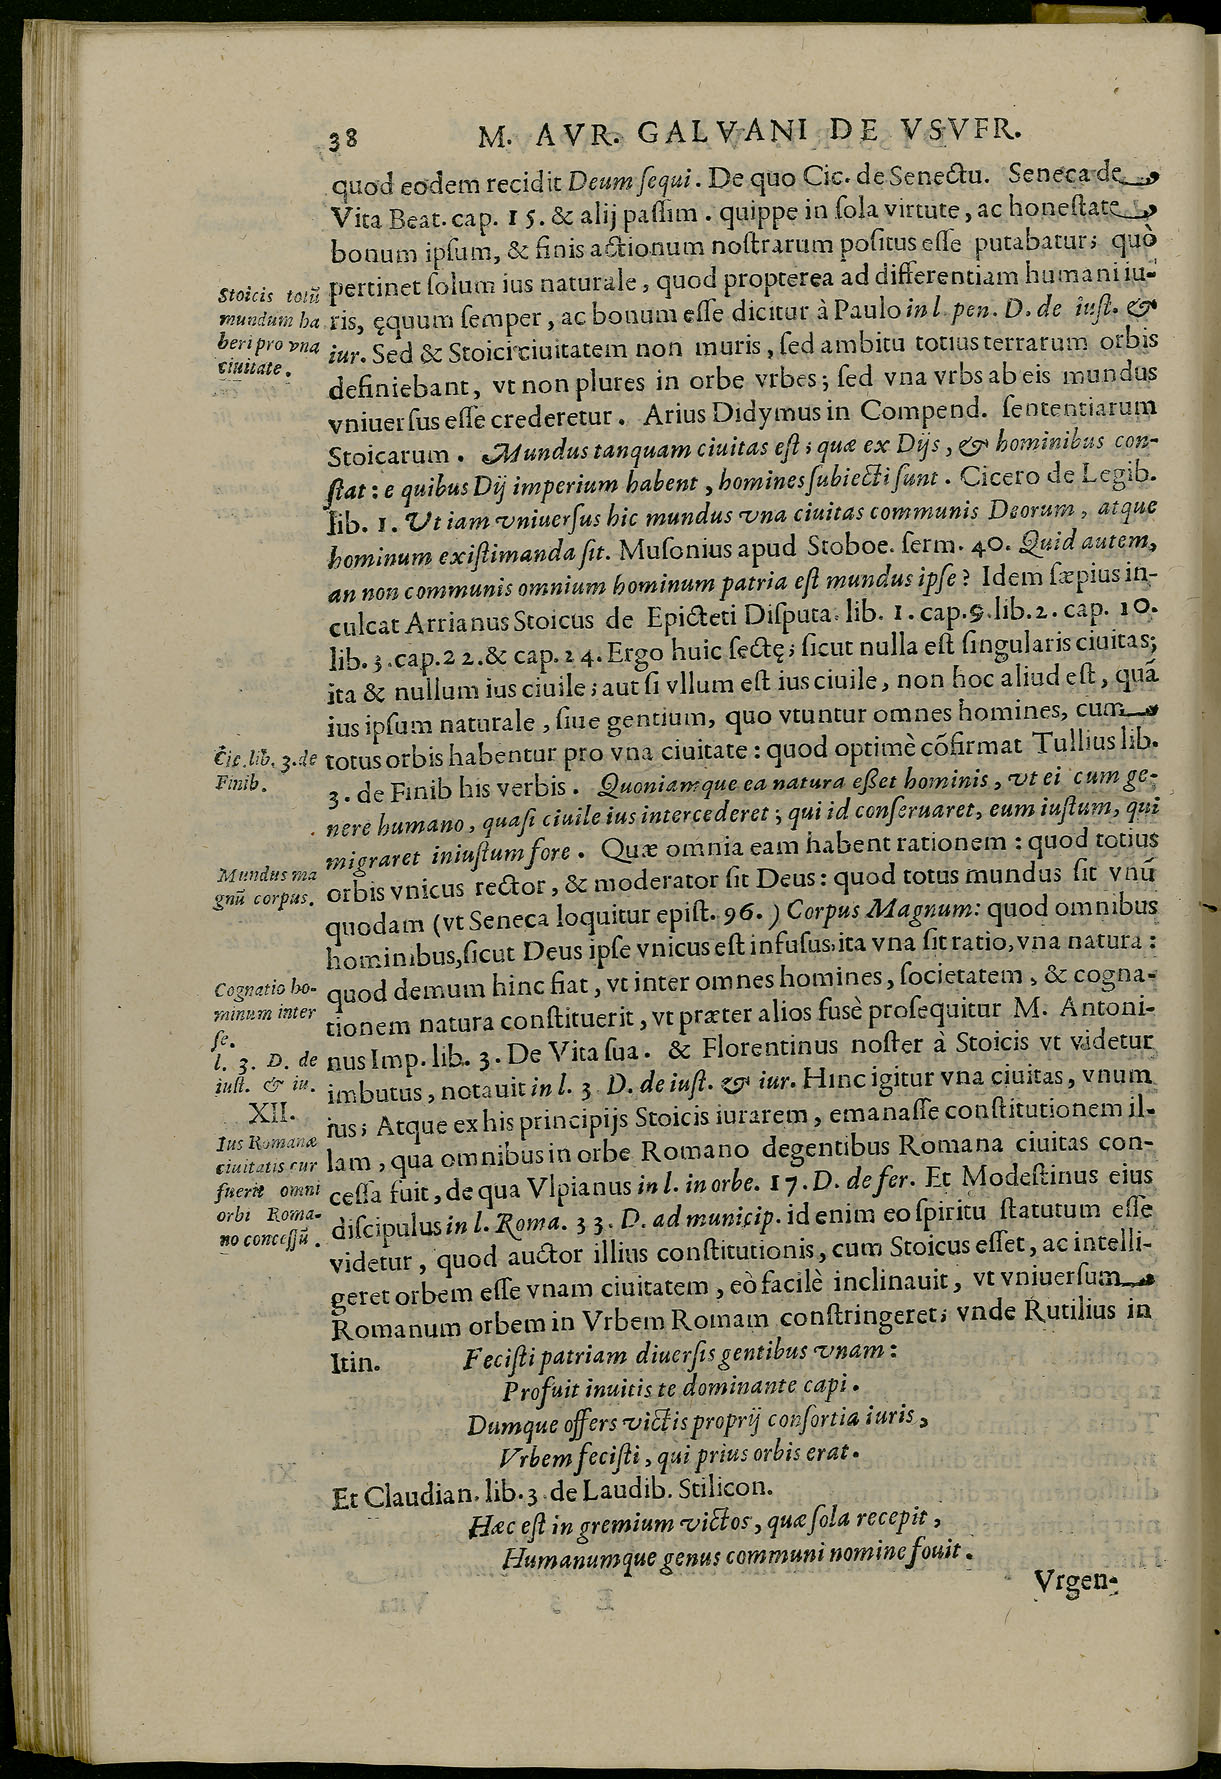 38 M. AVR. GALVANI DE VSVFR.
quod eodem recidit Deum ſequi. De quo Cic. de Senectu. Seneca de
Vita Beat. cap. 15. & alij paſſim. quippe in ſola virtute, ac honeſtate
bonum ipſum, & finis actionum noſtrarum poſitus eſſe putabatur; quò
pertinet ſolum ius naturale, quod propterea ad differentiam humani iu-
ris, ęquum ſemper, ac bonum eſſe dicitur à Paulo in l. pen. D. de iuſt. &
iur. Sed & Stoici ciuitatem non muris, ſed ambitu totius terrarum orbis
definiebant, vt non plures in orbe vrbes; ſed vna vrbs ab eis mundus
vniuerſus eſſe crederetur. Arius Didymus in Compend. ſententiarum
Stoicarum. Mundus tanquam ciuitas eſt; quæ ex Dijs, & hominibus con-
ſtat: e quibus Dij imperium habent, homines ſubiecti ſunt. Cicero de Legib.
lib. 1. Vt iam vniuerſus hic mundus vna ciuitas communis Deorum, atque
hominum exiſtimanda ſit. Muſonius apud Stoboe. ſerm. 40. Quid autem,
an non communis omnium hominum patria eſt mundus ipſe? Idem ſæpius in-
culcat Arrianus Stoicus de Epicteti Diſputa. lib. 1. cap. 9. lib. 2. cap. 10.
lib. 3. cap. 22. & cap. 24. Ergo huic ſectę; ſicut nulla eſt ſingularis ciuitas;
ita & nullum ius ciuile; aut ſi vllum eſt ius ciuile, non hoc aliud eſt, quã
ius ipſum naturale, ſiue gentium, quo vtuntur omnes homines, cum
totus orbis habentur pro vna ciuitate: quod optimè cõfirmat Tullius lib.
3. de Finib his verbis. Quoniamque ea natura eßet hominis, vt ei cum ge-
nere humano, quaſi ciuile ius intercederet; qui id conſeruaret, eum iuſtum, qui
migraret iniuſtum fore. Quæ omnia eam habent rationem: quod totius
orbis vnicus rector, & moderator ſit Deus: quod totus mundus ſit vnũ
quodam (vt Seneca loquitur epiſt. 96.) Corpus Magnum: quod omnibus
hominibus, ſicut Deus ipſe vnicus eſt infuſus, ita vna ſit ratio, vna natura:
quod demum hinc fiat, vt inter omnes homines, ſocietatem, & cogna-
tionem natura conſtituerit, vt præter alios fusè proſequitur M. Antoni-
nus Imp. lib. 3. De Vita ſua. & Florentinus noſter à Stoicis vt videtur
imbutus, notauit in l. 3 D. de iuſt. & iur. Hinc igitur vna ciuitas, vnum
ius; Atque ex his principijs Stoicis iurarem, emanaſſe conſtitutionem il-
lam, qua omnibus in orbe Romano degentibus Romana ciuitas con-
ceſſa fuit, de qua Vlpianus in l. in orbe. 17. D. de ſer. Et Modeſtinus eius
diſcipulus in l. Roma. 33. D. ad municip. id enim eo ſpiritu ſtatutum eſſe
videtur, quod auctor illius conſtitutionis, cum Stoicus eſſet, ac intelli-
geret orbem eſſe vnam ciuitatem, eò facilè inclinauit, vt vniuerſum
Romanum orbem in Vrbem Romam conſtringeret; vnde Rutilius in
Itin. Feciſti patriam diuerſis gentibus vnam:
Profuit inuitis te dominante capi.
Dumque offers victis proprij conſortia iuris,
Vrbem feciſti, qui prius orbis erat.
Et Claudian. lib. 3. de Laudib. Stilicon.
Hæc eſt in gremium victos, quæ ſola recepit,
Humanumque genus communi nomine fouit.
Vrgen-
Stoicis totũ
mundum ha
beri pro vna
ciuitate.
Cic. lib. 3. de
Finib.
Mundus ma
gnũ corpus.
Cognatio ho-
minum inter
ſe.
l. 3. D. de
iuſt. & iu.
XII.
Ius Romanæ
ciuitatis cur
fuerit omni
orbi Roma-
no conceſſũ.